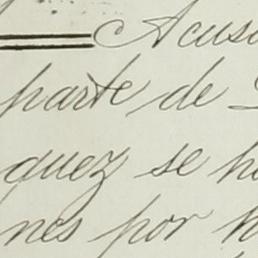 Acuso
parte de
quez se h
nes por